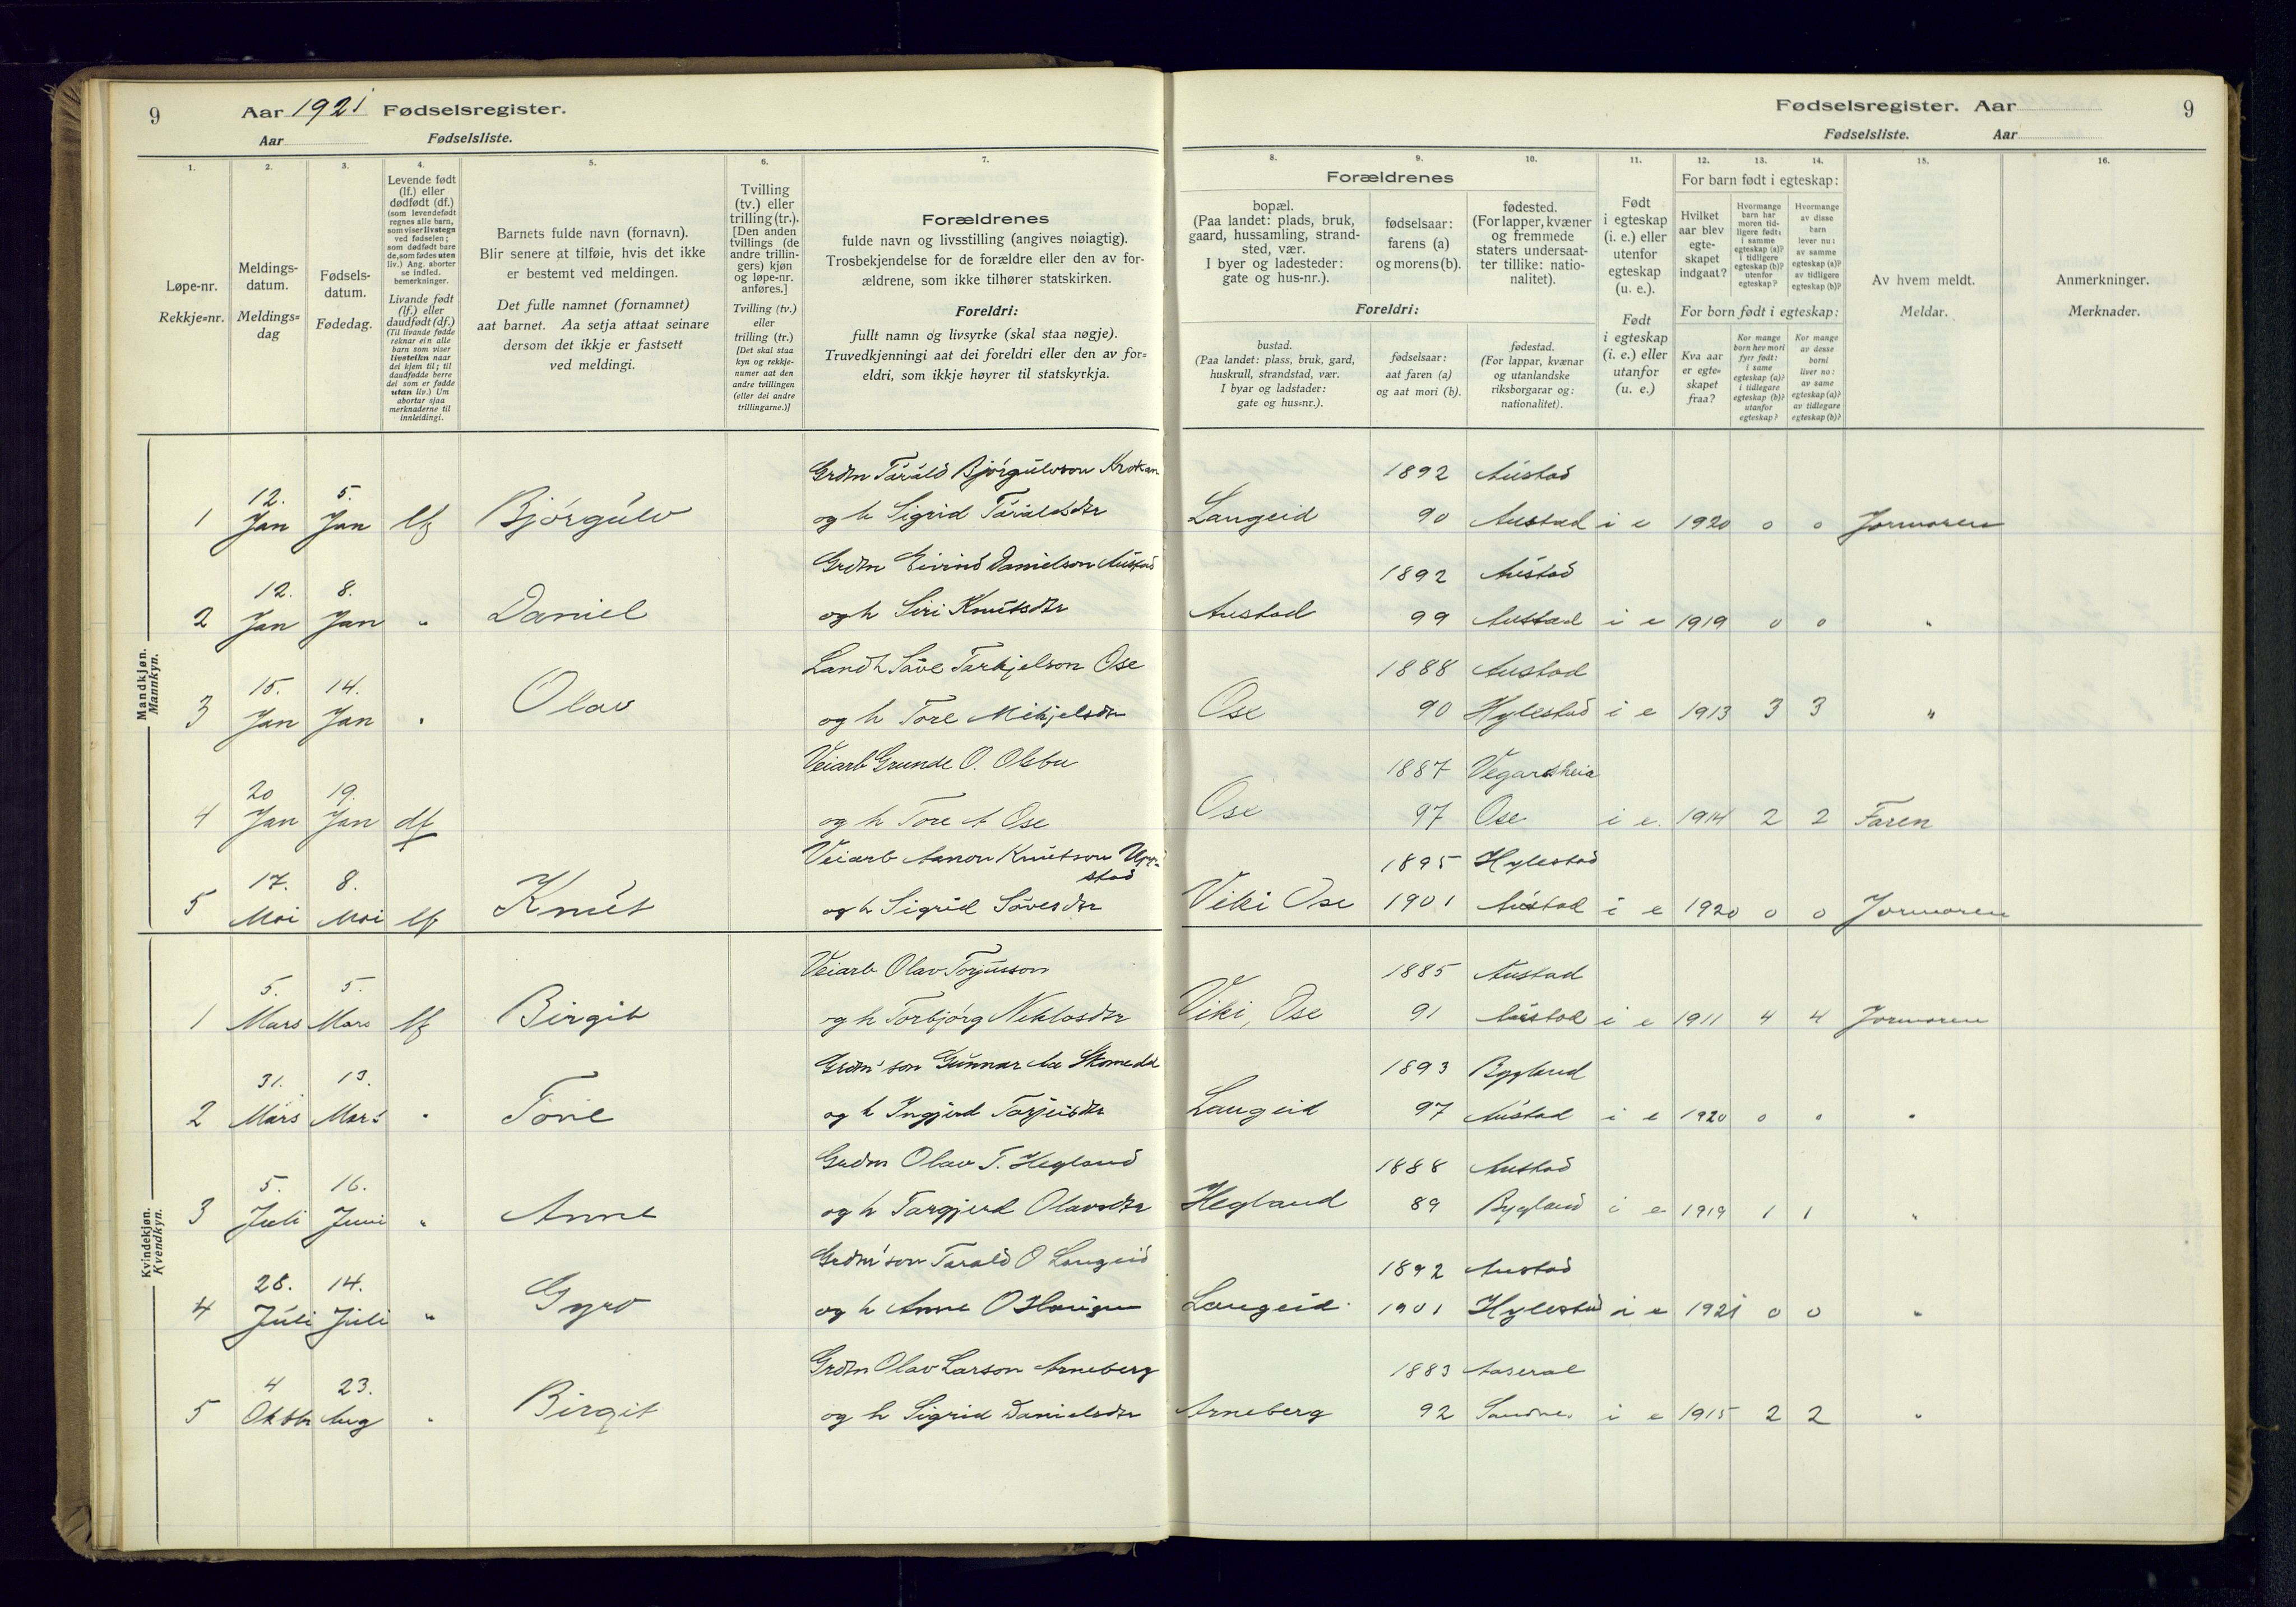 9 Aar 1921 Fødselsregister.
Aar Fødselsliste.
Fødselsregister. Aar 9
Fødselsliste. Aar
1. 2. 3. 4. 5. 6. 7.
Løpe-nr.
Rekkje=nr.
Meldings-
datum.
Meldings=
dag
Fødsels-
datum.
Fødedag.
Levende født
(lf.) eller
dødfødt (df.)
(som levendefødt
regnes alle barn,
som viser livstegn
ved fødselen;
som dødfødt bare
de, som fødes uten
liv.) Ang. aborter
se indled.
bemerkninger.
Livande født
(lf.) eller
daudfødt (df.)
(Til livande fødde
reknar ein alle
barn som viser
livsteikn naar
dei kjem til; til
daudfødde berre
dei som er fødde
utan liv.) Um
abortar sjaa
merknaderne til
innleidingi.
Barnets fulde navn (fornavn).
Blir senere at tilføie, hvis det ikke
er bestemt ved meldingen.
Det fulle namnet (fornamnet)
aat barnet. Aa setja attaat seinare
dersom det ikkje er fastsett
ved meldingi.
Tvilling
(tv.) eller
trilling (tr.).
[Den anden
tvillings (de
andre trillin-
gers) kjøn
og løpe-nr.
anføres.]
Tvilling (tv.)
eller
trilling (tr.)
[Det skal staa
kyn og rekkje-
numer aat den
andre tvillingen
(eller dei andre
trillingarne.)]
Forældrenes
fulde navn og livsstilling (angives nøiagtig).
Trosbekjendelse for de forældre eller den av for-
ældrene, som ikke tilhører statskirken.
Foreldri:
fullt namn og livsyrke (skal staa nøgje).
Truvedkjenningi aat dei foreldri eller den av for=
eldri, som ikkje høyrer til statskyrkja.
8. 9. 10. 11. 12. 13. 14. 15. 16.
Forældrenes
bopæl.
(Paa landet: plads, bruk,
gaard, hussamling, strand-
sted, vær.
I byer og ladesteder:
gate og hus-nr.).
fødselsaar:
farens (a)
og morens (b).
fødested.
(For lapper, kvæner
og fremmede
staters undersaat-
ter tillike: natio-
nalitet).
Foreldri:
bustad.
(Paa landet: plass, bruk, gard,
huskrull, strandstad, vær.
I byar og ladstader:
gate og hus=nr.).
fødselsaar:
aat faren (a)
og aat mori (b).
fødestad.
(For lappar, kvænar
og utanlandske
riksborgarar og:
nationalitet).
Født
i egteskap
(i. e.) eller
utenfor
egteskap
(u. e.).
Født
i egteskap
(i. e.) eller
utanfor
(u. e.)
For barn født i egteskap:
Hvilket
aar blev
egte-
skapet
indgaat?
Hvormange
barn har
moren tid-
ligere født:
i samme
egteskap (a)?
i tidligere
egteskap (b)?
utenfor
egteskap?
Hvormange
av disse
barn
lever nu:
av samme
egteskap (a)?
av tidligere
egteskap (b)?
For born født i egteskap:
Kva aar
er egte=
skapet
fraa?
Kor mange
born hev mori
fyrr født:
i same
egteskap (a)?
i tidlegare
egteskap (b)?
utanfor
egteskap?
Kor mange
av desse
borni
liver no:
av same
egteskap (a)?
av tidlegare
egteskap (b)?
Av hvem meldt.
Meldar.
Anmerkninger.
Merknader.
Mandkjøn.
Mannkyn.
Grdm Tarald Bjørgulvson Krokan 1892 Austad
1 12. Jan 5. Jan lf Bjørgulv og h Sigrid Taraldsdtr Langeid 90 Austad i e 1920 0 0 Jormoren
Grdm Eivind Danielson Austad 1892 Austad
2 12. Jan 8. Jan " Daniel og h Siri Knutsdtr Austad 99 Austad i e 1919 0 0 "
Landh Save Tarkjelson Ose 1888 Austad
3 15. Jan 14. Jan " Olav og h Tore Mikjelsdtr Ose 90 Hylestad i e 1913 3 3 "
Veiarb Grunde O. Olsbu 1887 Vegardsheia
4 20 Jan 19. Jan df og h Tore A Ose Ose 97 Ose i e. 1914 2 2 Faren
Veiarb Aanon Knutson Upp=
stad 1895 Hylestad
5 17. Mai 8. Mai lf Knut og h Sigrid Savesdtr Viki Ose 1901 Austad i e 1920 0 0 Jormoren
Kvindekjøn.
Kvendkyn.
Veiarb Olav Torjusson 1885 Austad
1 5. Mars 5. Mars lf Birgit og h Torbjørg Neklosdtr Viki, Ose 91 Austad i e 1911 4 4 Jormoren
Grdm'son Gunnar Aa Skomedal 1893 Bygland
2 31. Mars 13. Mars " Tone og h Ingjerd Tarjeisdtr Langeid 97 Austad i e 1920 0 0 "
Grdm Olav T. Hegland 1888 Austad
3 5. Juli 16. Juni " Anne og h Targjerd Olavsdtr Hegland 89 Bygland i e 1919 1 1 "
Grdm'son Tarald O Langeid 1892 Austad
4 28. Juli 14. Juli " Gyro og h Anne O Haugen Langeid. 1901 Hylestad i e 1921 0 0 "
Grdm Olav Larson Arneberg 1883 Aaseral
5 4 Oktbr 23. Aug " Birgit og h Sigrid Danielsdtr Arneberg 92 Sandnes i e 1915 2 2 "